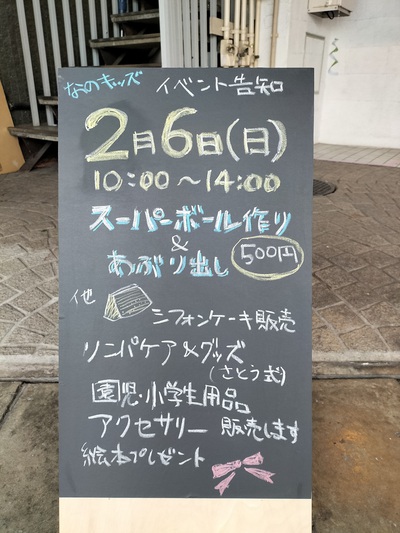 なつのキッズ イベント告知
2月6日(日)
10:00〜14:00
スーパーボール作り
&
あぶり出し 500円
他 シフォンケーキ販売
リンパケア&グッズ
(さとう式)
園児・小学生用品
アクセサリー 販売します
絵本プレゼント